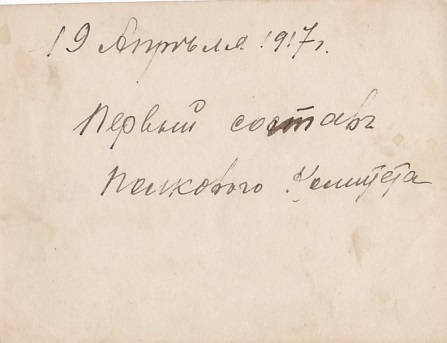 19 Апрѣля 1917г.
Первый составъ
Полкового Комитета